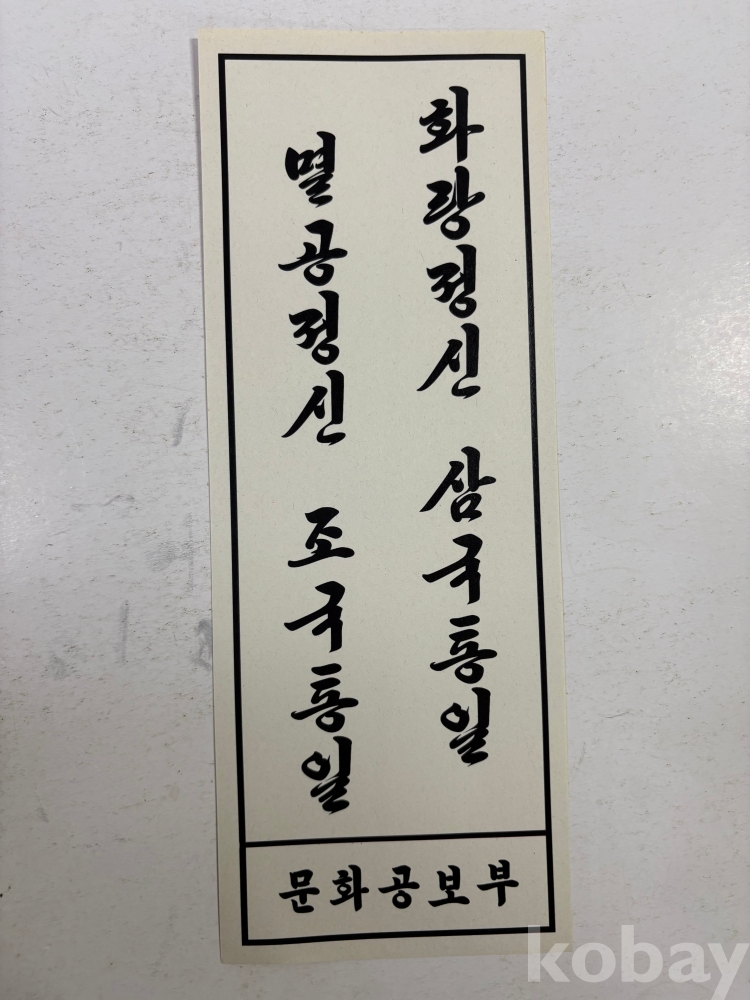 화랑정신 삼국통일
멸공정신 조국통일
문화공보부
kobay